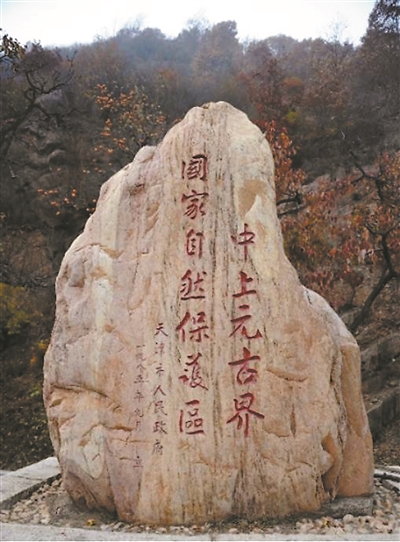 中上元古界
國家自然保護區
天津市人民政府
一九八五年九月